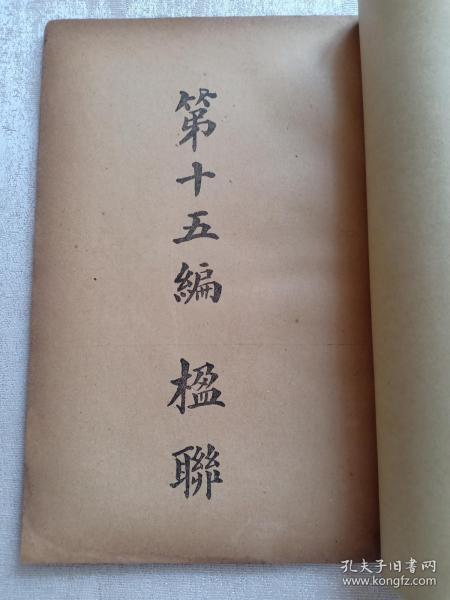 第十五編 楹聯
孔夫子旧书网
www.kongfz.com